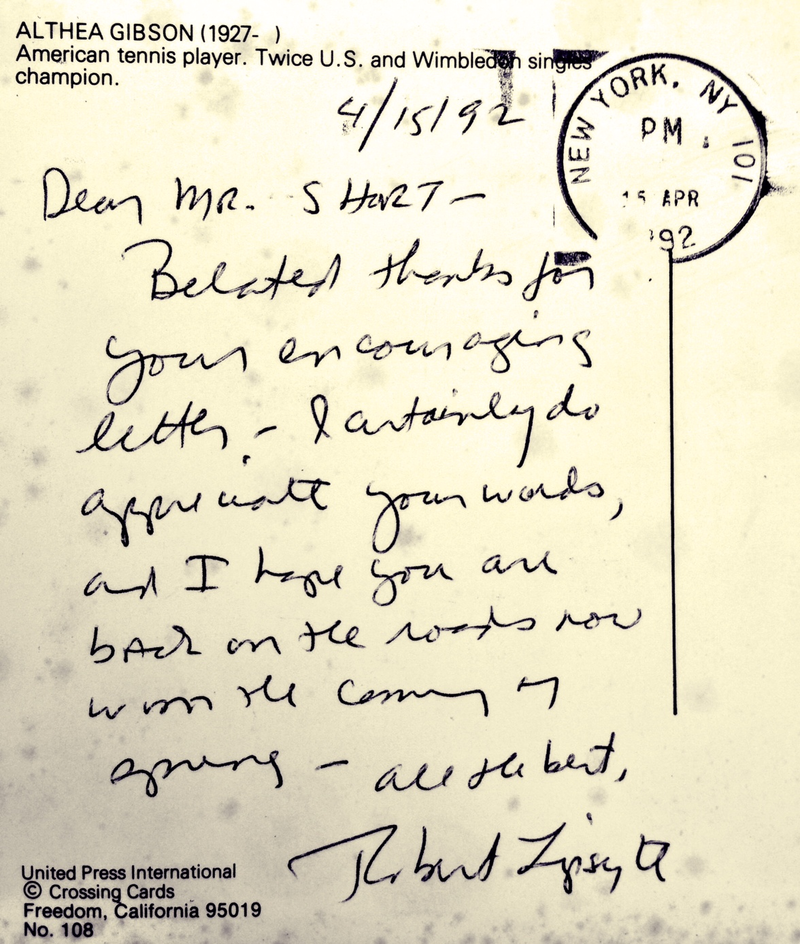 ALTHEA GIBSON (1927-  )
American tennis player. Twice U.S. and Wimbledon singles
champion.
4/15/92
NEW YORK, NY 101
PM
15 APR
'92
Dear MR. SHORT —
Belated thanks for
your encouraging
letter – I certainly do
appreciate your words,
and I hope you are
back on the roads now
with the coming of
spring — all the best,
Robert Lipsyte
United Press International
© Crossing Cards
Freedom, California 95019
No. 108